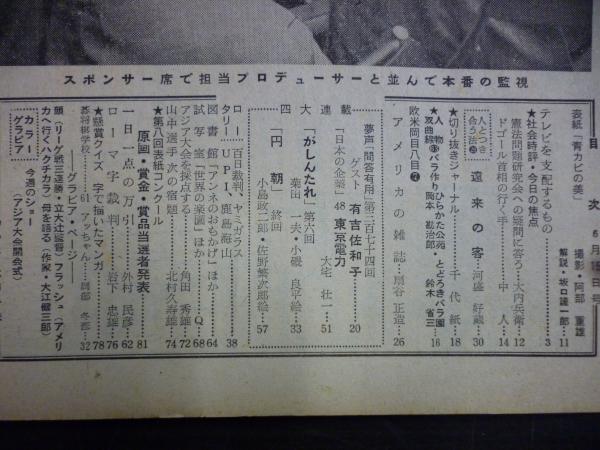 スポンサー席で担当プロデューサーと並んで本番の監視
目次 6月15日号
表紙「青カビの美」 撮影・阿部 重雄 解説・坂口謹一郎…11
テレビを支配するもの 3
★社会時評・今日の焦点
憲法問題研究会への疑問に答う…大内兵衛…12
ドゴール首相の行く手…中 人…14
人とつき合う法② 遠来の客…河盛 好蔵…30
★切り抜きジャーナル…千代紙…18
★人物 双曲線③ バラ作り ひらかた公苑 岡本 勘治郎 とどろきバラ園 鈴木 省三 16
敗米岡目八目⑦
アメリカの雑誌…扇谷 正造…26
連載
夢声「問答有用」第三百七十四回
ゲスト 有吉佐和子 20
「日本の企業」48 東京電力
大宅 壮一…51
四大
「がしんたれ」第六回
菊田 一夫・小磯 良平絵…33
「円朝」終回
小島政二郎・佐野繁次郎絵…57
ロータリー 百日裁判、ヤミガラス UFI、鹿島海山 38
図書館「アンネのおもかげ」ほか 64
試写室「世界の楽園」ほか…Q…68
アジア大会を採点する…角田 秀雄…72
山中選手次の宿題…北村久寿雄…74
★第八回表紙コンクール
原画・賞金・賞品当選者発表 81
一日一点の万引…外村 民彦…62
ローマ字裁判…岩下 忠雄…76
★懸賞クイズ・字で描いたマンガ 78
若將棋学校…61
――グラビア・ページ――
顔(リーグ戦三連勝・立大辻監督) フラッシュ(アメリカへ行くハクチカラ) 母を語る(作家・大江健三郎)
カラーグラビア 今週のショー(アジア大会開会式)